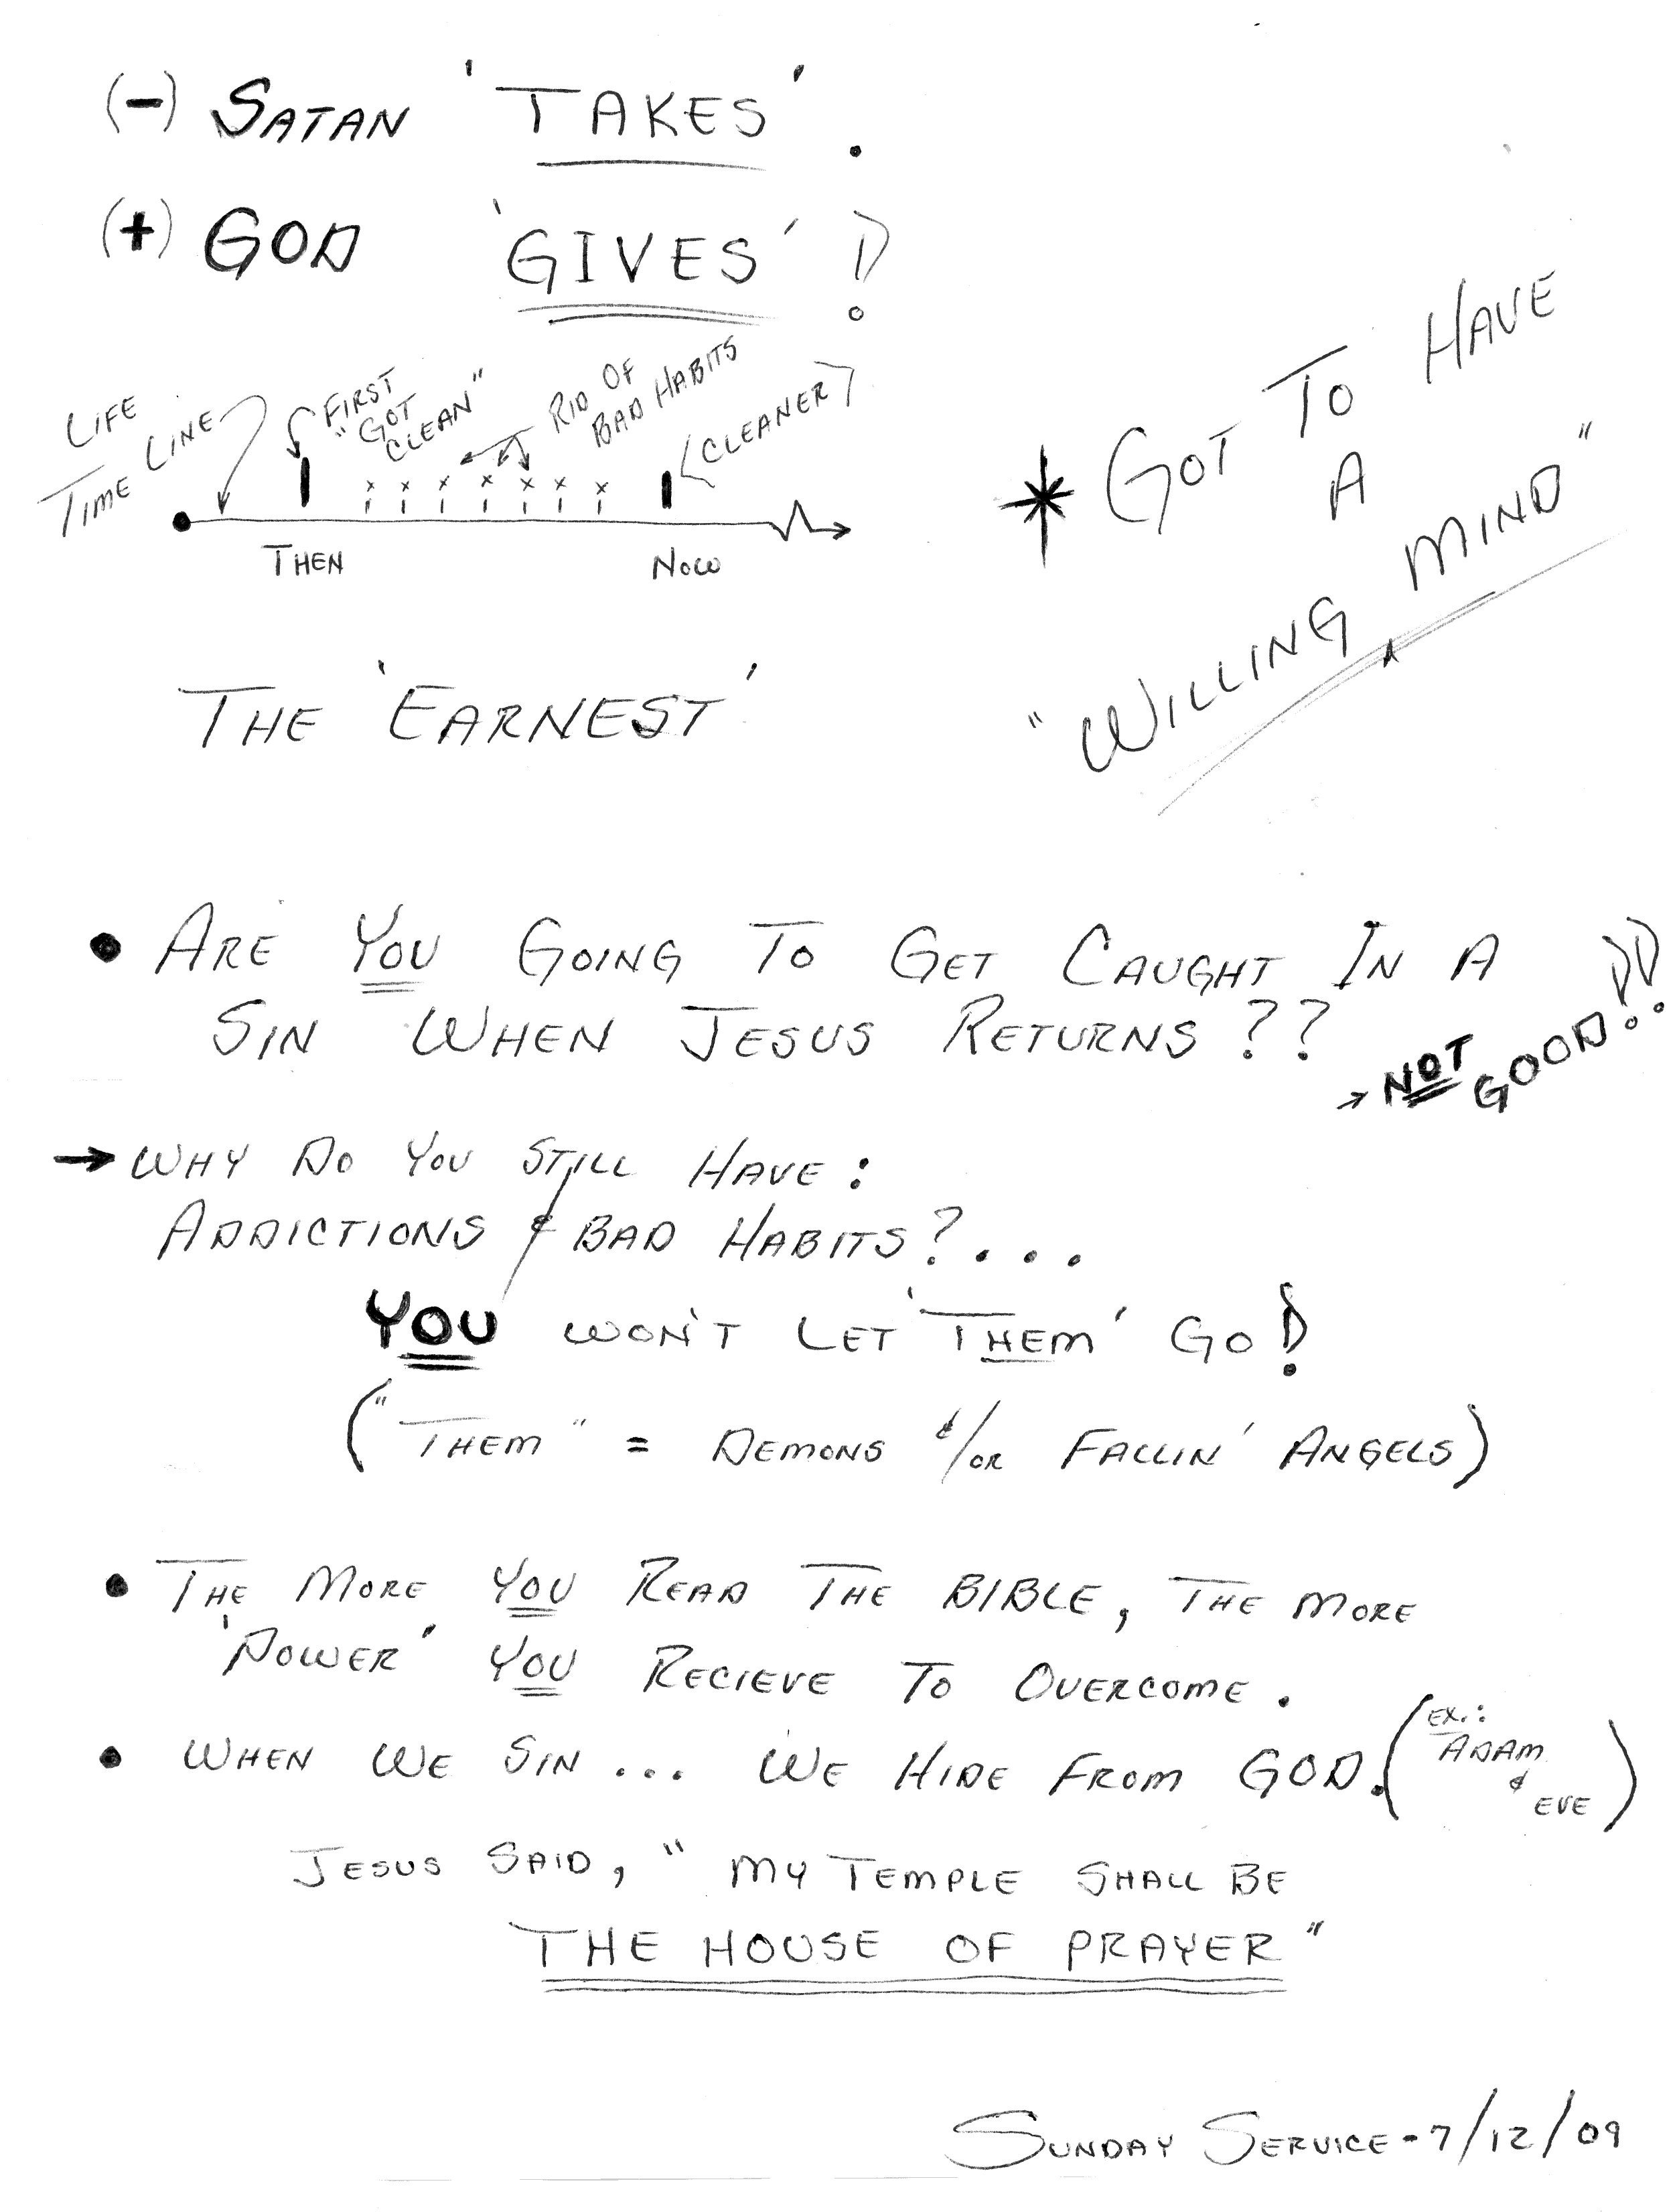 (-) SATAN 'TAKES'.
(+) GOD 'GIVES'!
LIFE
TIME LINE
FIRST
"GOT
CLEAN"
RID OF
BAD HABITS
CLEANER
THEN
NOW
* GOT TO HAVE
A
"WILLING MIND"
THE 'EARNEST'
• ARE YOU GOING TO GET CAUGHT IN A
SIN WHEN JESUS RETURNS??
→ NOT GOOD!!
→ WHY DO YOU STILL HAVE:
ADDICTIONS & BAD HABITS?....
YOU WON'T LET 'THEM' GO!
("THEM" = DEMONS &/OR FALLIN' ANGELS)
• THE MORE YOU READ THE BIBLE, THE MORE
'POWER' YOU RECIEVE TO OVERCOME.
• WHEN WE SIN... WE HIDE FROM GOD. (EX.:
ADAM
&
EVE)
JESUS SAID, "MY TEMPLE SHALL BE
THE HOUSE OF PRAYER"
SUNDAY SERVICE - 7/12/09